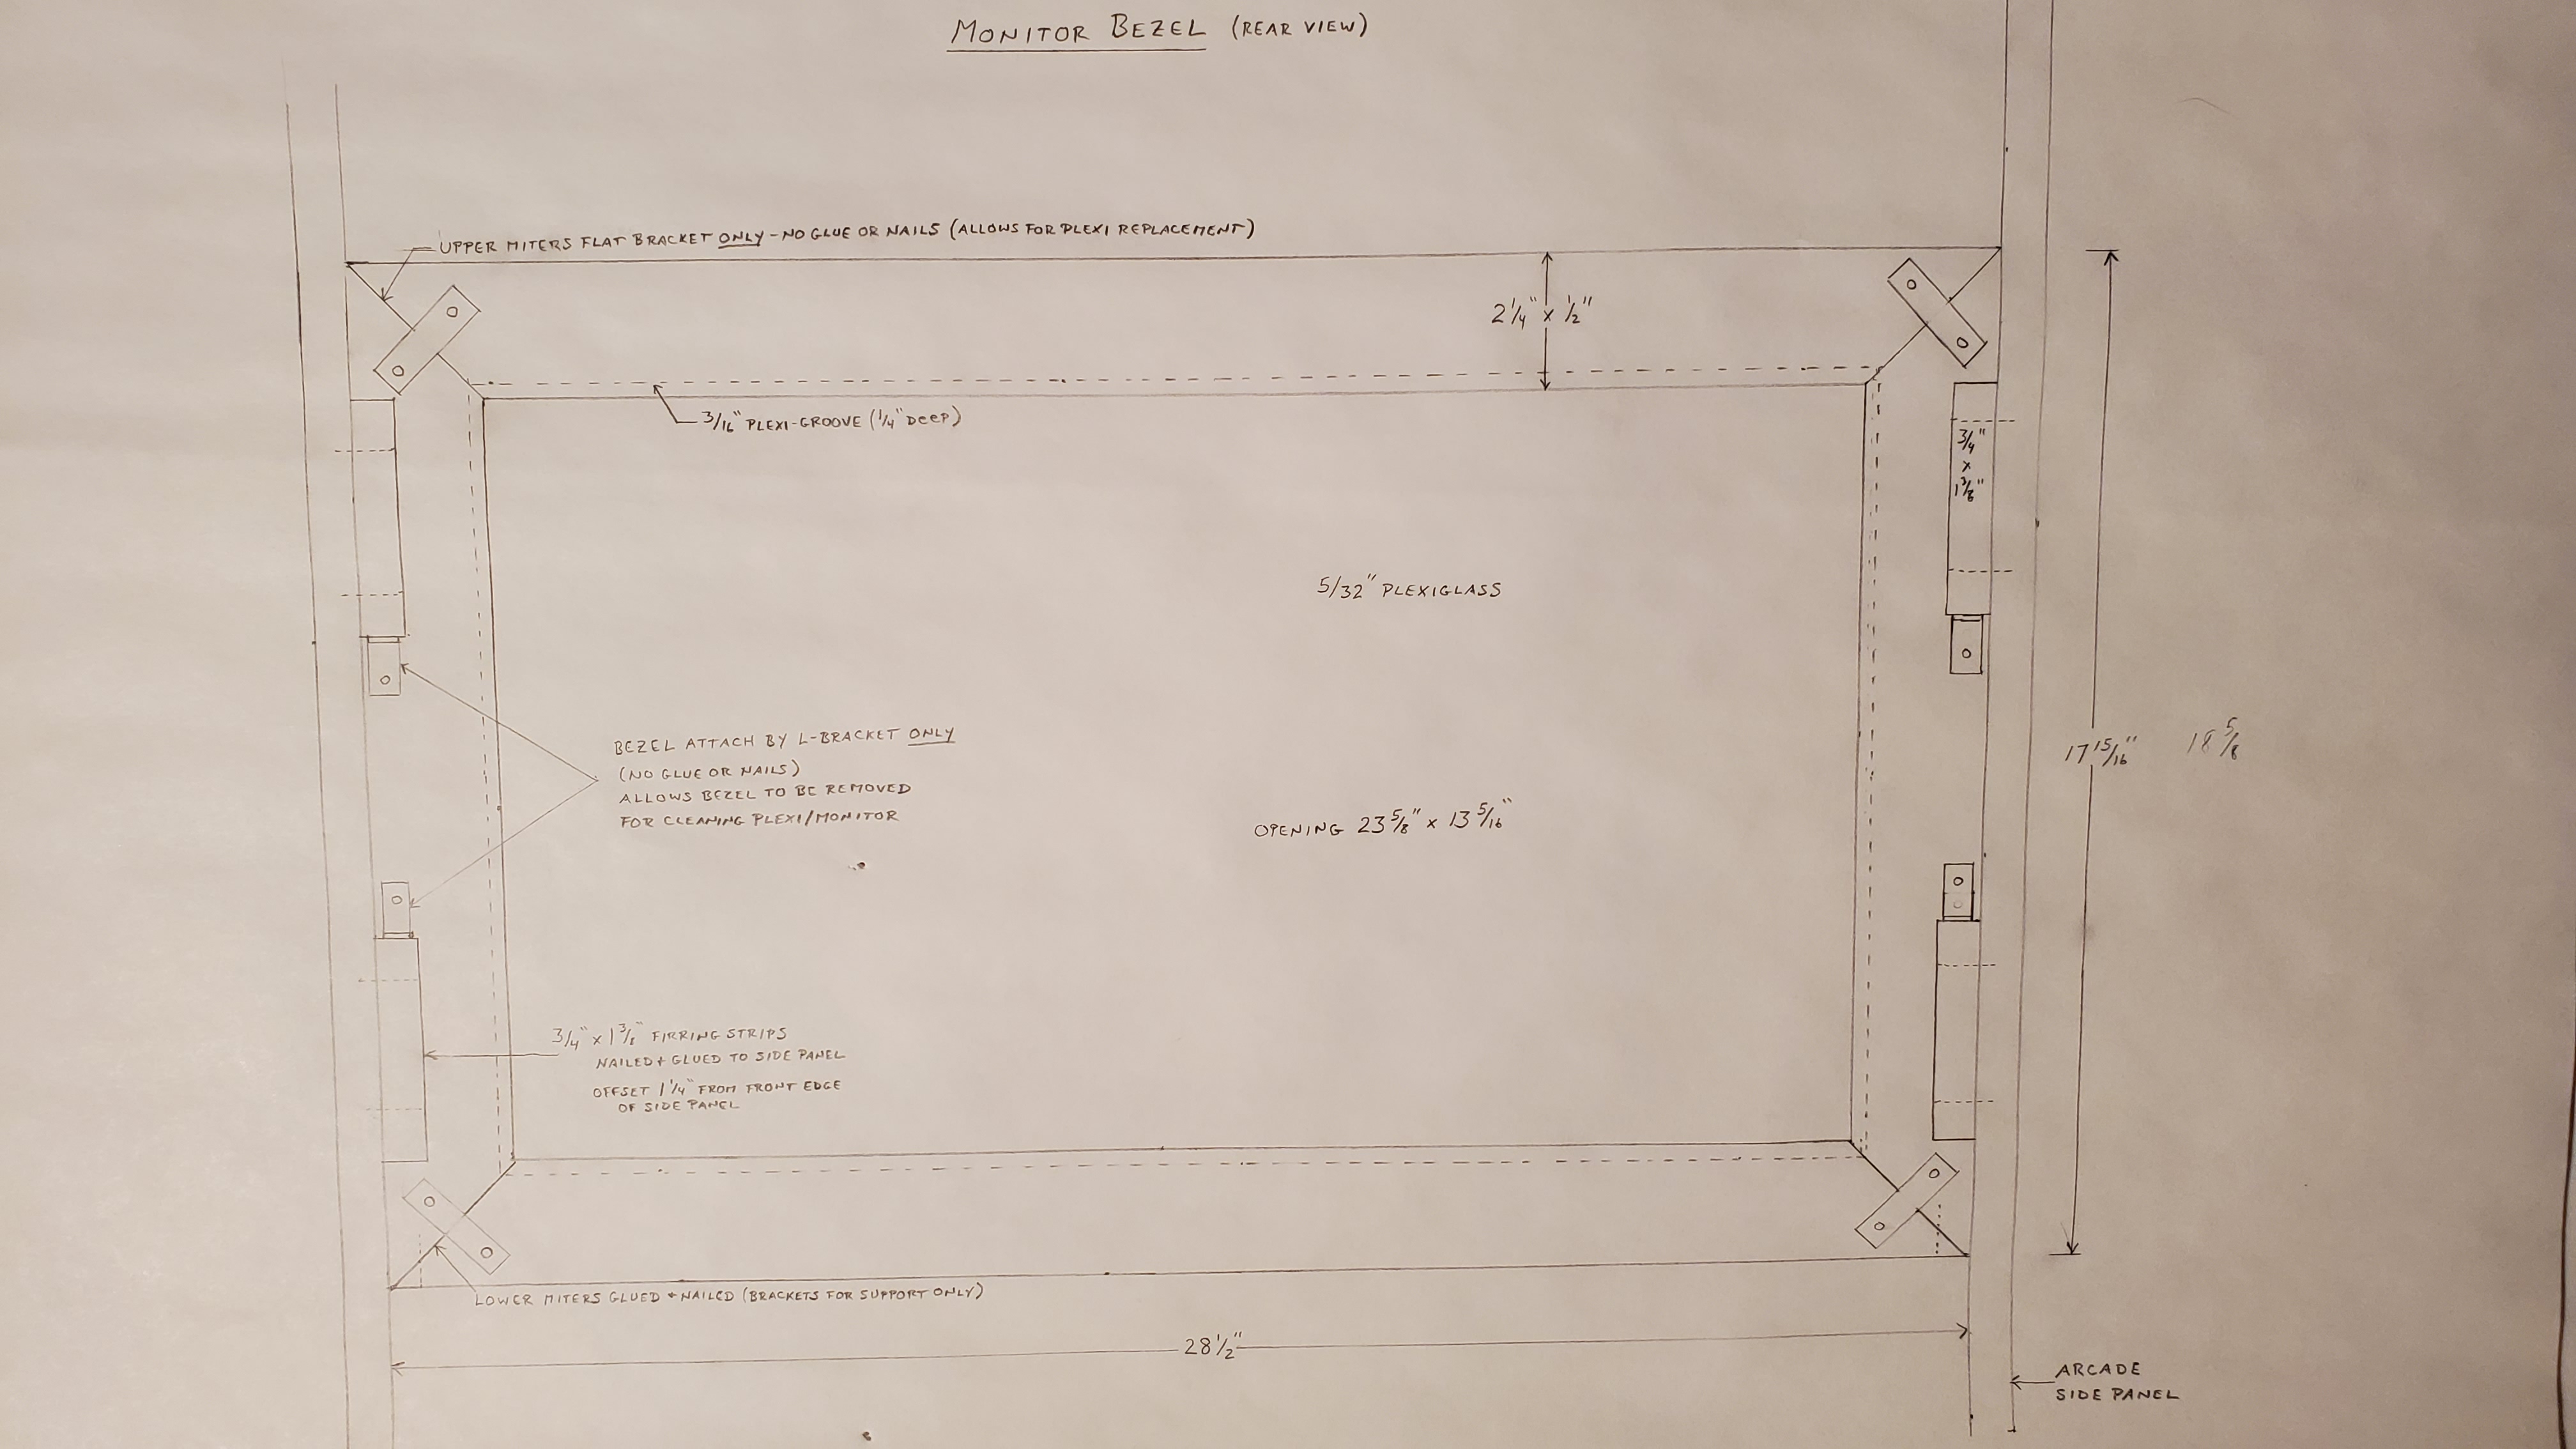 MONITOR BEZEL (REAR VIEW)
UPPER MITERS FLAT BRACKET ONLY - NO GLUE OR NAILS (ALLOWS FOR PLEXI REPLACEMENT)
2 1/4" x 1/2"
3/16" PLEXI-GROOVE (1/4" DEEP)
3/4"
x
1 3/8"
5/32" PLEXIGLASS
BEZEL ATTACH BY L-BRACKET ONLY
(NO GLUE OR NAILS)
ALLOWS BEZEL TO BE REMOVED
FOR CLEANING PLEXI/MONITOR
17 15/16"
18 5/8
OPENING 23 5/8" x 13 5/16"
3/4" x 1 3/8" FIRRING STRIPS
NAILED + GLUED TO SIDE PANEL
OFFSET 1 1/4" FROM FRONT EDGE
OF SIDE PANEL
LOWER MITERS GLUED + NAILED (BRACKETS FOR SUPPORT ONLY)
28 1/2"
ARCADE
SIDE PANEL